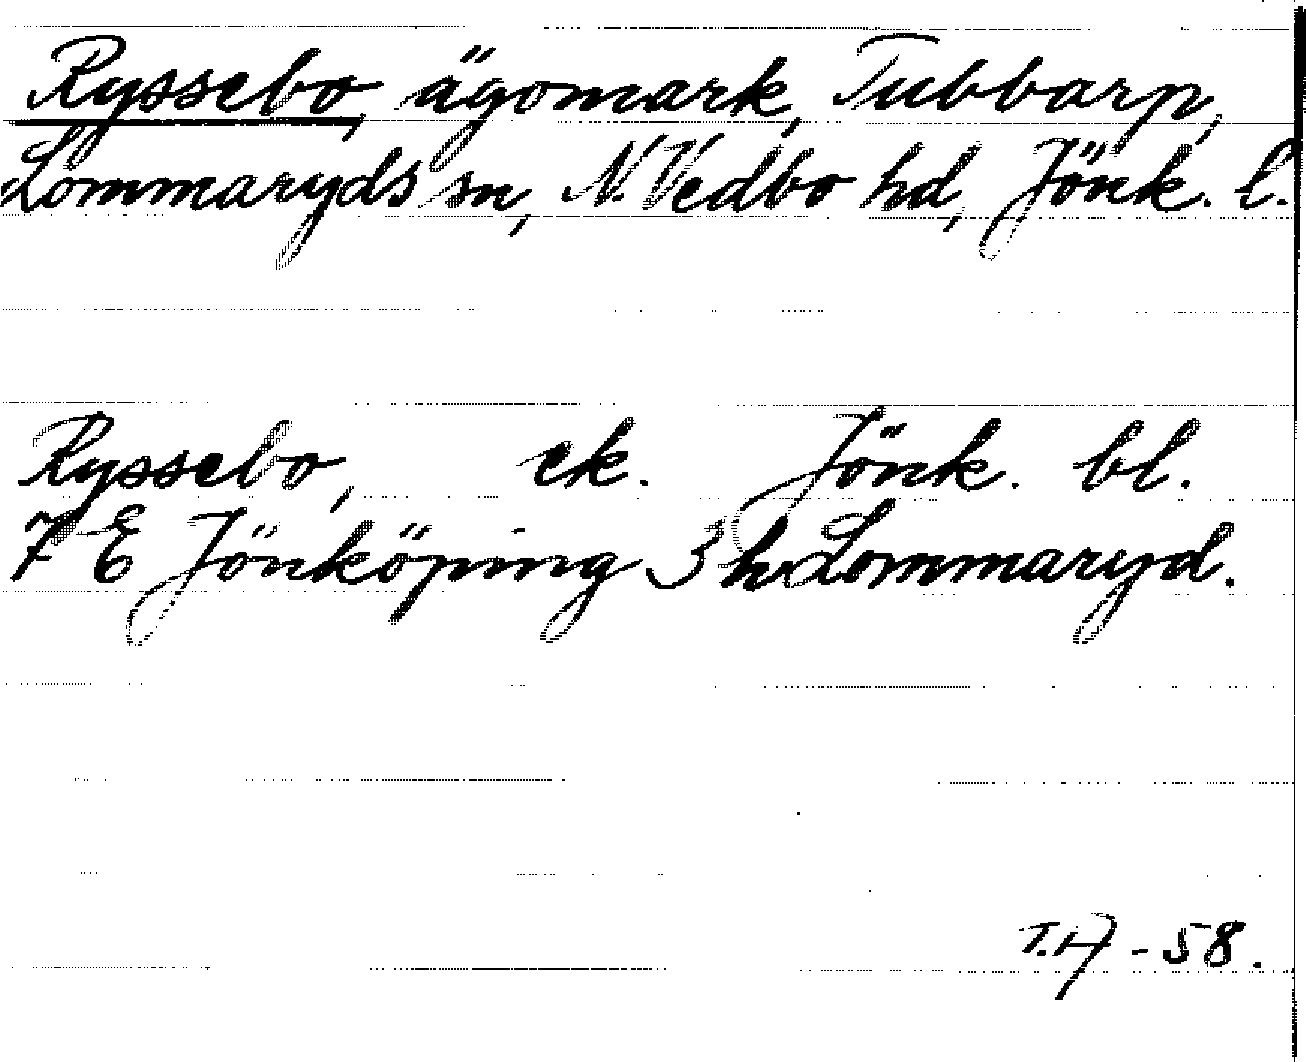 Ryssebo, ägomark, Tubbarp,
Lommaryds sn, N. Vedbo hd, Jönk. l.
Ryssebo, ek. Jönk. bl.
7 E Jönköping 3 h Lommaryd.
T.H - 58.